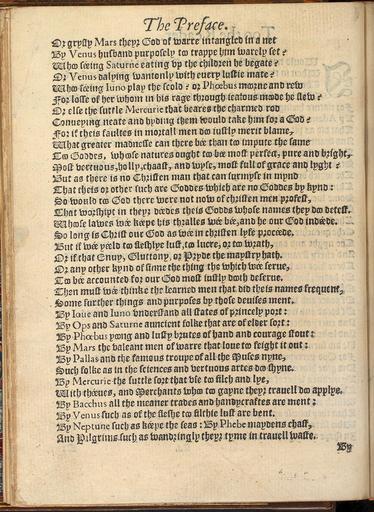 The Preface.
Or grysly Mars theyr God of warre intangled in a net
By Venus husband purposely to trappe him warely set?
Who séeing Saturne eating vp the children he begate?
Or Venus dalying wantonly with euery lustie mate?
Who séeing Iuno play the scold? or Phœbus morne and rew
For losse of her whom in his rage through iealous moode he slew?
Or else the suttle Mercurie that beares the charmed rod
Conueying neate and hyding them would take him for a God?
For if theis faultes in mortall men do iustly merit blame,
What greater madnesse can there bée than to impute the same
To Goddes, whose natures ought to bée most perfect, pure and bright,
Most vertuous, holly, chaast, and wyse, most full of grace and lyght?
But as there is no Christen man that can surmyse in mynd
That theis or other such are Goddes which are no Goddes by kynd:
So would to God there were not now of christen men profest,
That worshipt in theyr déedes theis Godds whose names they do detest.
Whose lawes wée kéepe his thralles wée bée, and he our God indéede.
So long is Christ our God as wée in christen lyfe procéede.
But if wée yéeld to fleshlye lust, to lucre, or to wrath,
Or if that Enuy, Gluttony, or Pryde the maystry hath,
Or any other kynd of sinne the thing the which wée serue,
To bée accounted for our God most iustly doth deserue.
Then must wée thinke the learned men that did theis names frequent,
Some further things and purposes by those deuises ment.
By Ioue and Iuno vnderstand all states of princely port:
By Ops and Saturne auncient folke that are of elder sort:
By Phœbus yoong and lusty brutes of hand and courage stout:
By Mars the valeant men of warre that loue to feight it out:
By Pallas and the famous troupe of all the Muses nyne,
Such folke as in the sciences and vertuous artes do shyne.
By Mercurie the suttle sort that vse to filch and lye,
With théeues, and Merchants who to gayne theyr trauell do applye.
By Bacchus all the meaner trades and handycraftes are ment:
By Venus such as of the fleshe to filthie lust are bent.
By Neptune such as kéepe the seas: By Phebe maydens chast,
And Pilgrims such as wandringly theyr tyme in trauell waste.
By